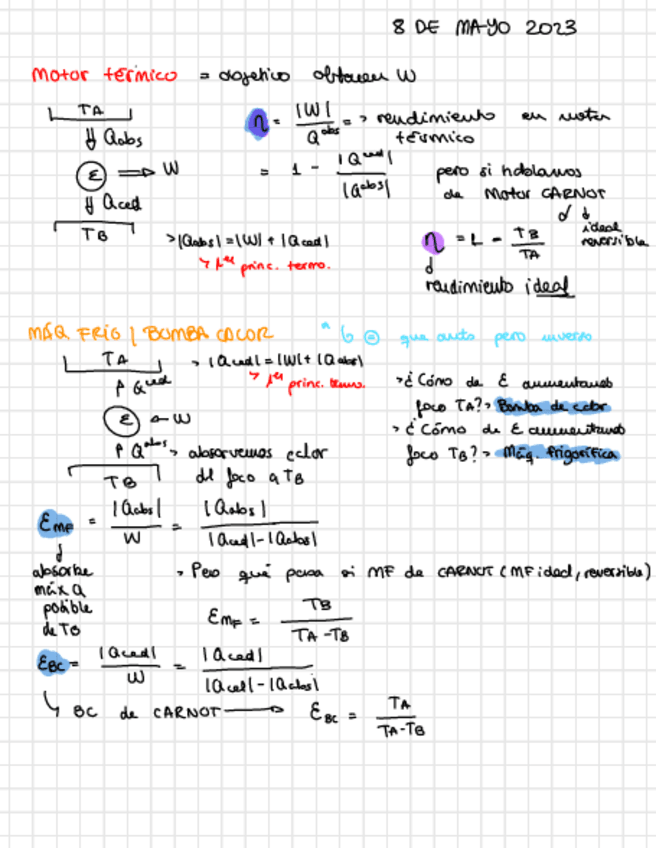 8 DE MAYO 2023
Motor térmico = objetivo obtener W
TA
Qabs
ε ⇒ W
Qced
TB
η = |W| / Qabs => rendimiento en motor térmico
= 1 - |Qced| / |Qabs|
pero si hablamos
de Motor CARNOT
ideal
reversible
η = 1 - TB / TA
rendimiento ideal
> |Qabs| = |W| + |Qced|
1er princ. termo.
MÁQ FRIG / BOMBA CALOR
que antes pero inverso
TA
Qced
ε ← W
Qabs > absorvemos calor
del foco a TB
TB
> |Qced| = |W| + |Qabs|
1er princ. termo.
> ¿Cómo de ε aumentando
foco TA? > Bomba de calor
> ¿Cómo de ε aumentando
foco TB? > Máq. frigorífica
εMF = |Qabs| / W = |Qabs| / |Qced| - |Qabs|
absorbe
máx Q
posible
de TB
> Pero qué pasa si MF de CARNOT (MF ideal, reversible)
εMF = TB / TA - TB
εBC = |Qced| / W = |Qced| / |Qced| - |Qabs|
BC de CARNOT → εBC = TA / TA - TB